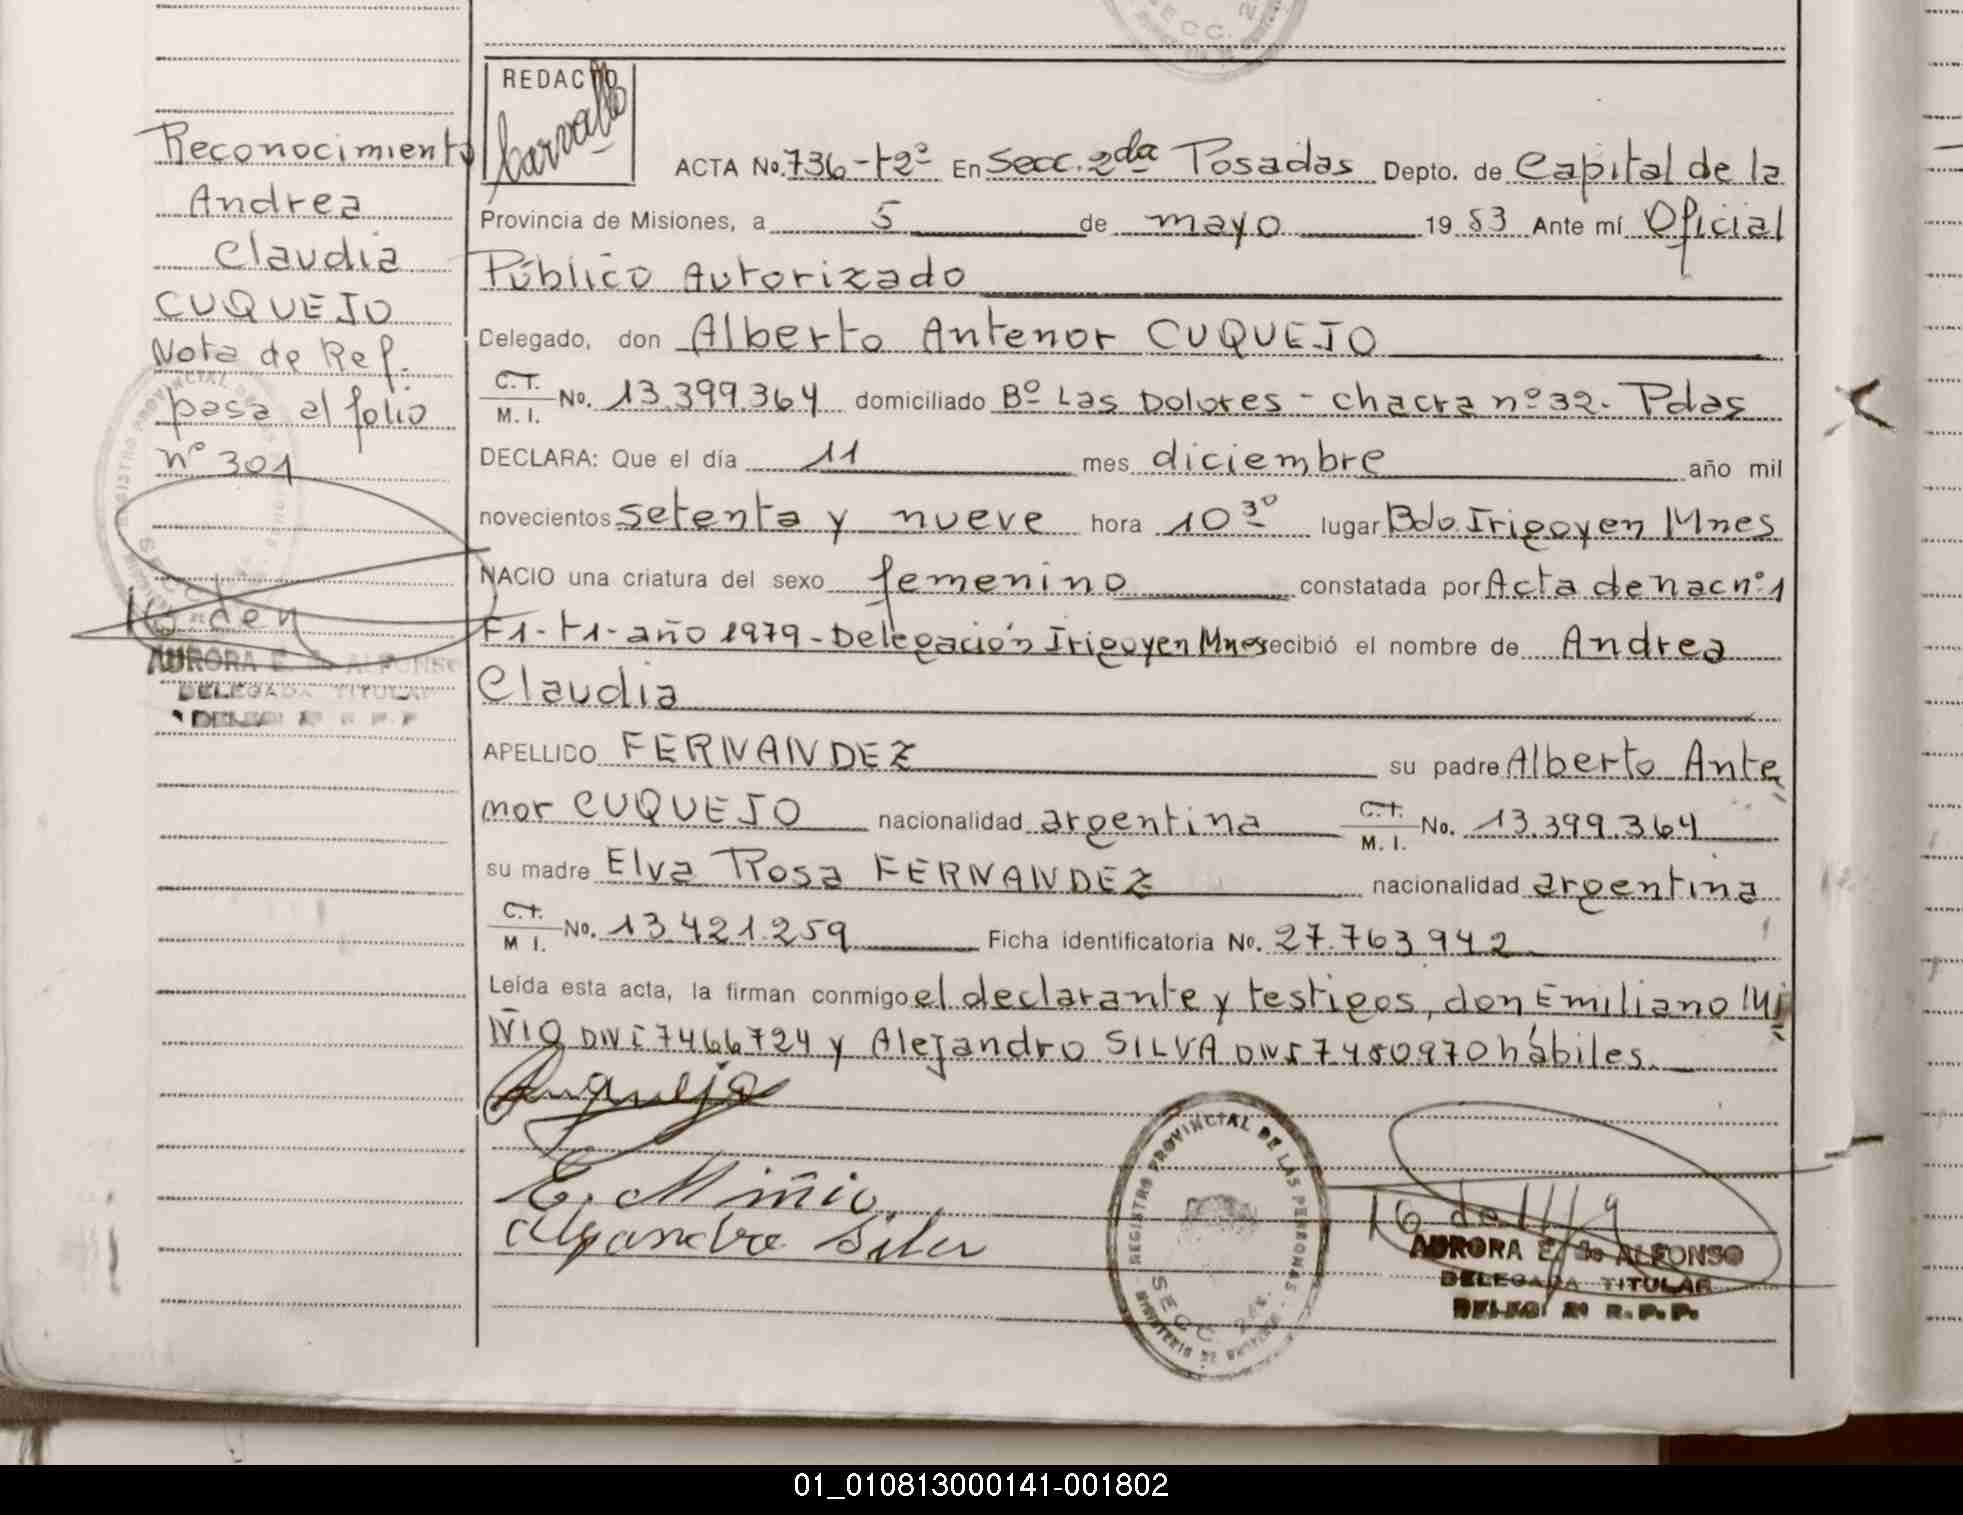 SECC. 2
REDACTO
Carvallo
Reconocimiento
Andrea
Claudia
CUQUEJO
Nota de Ref.
pasa al folio
nº 301
AURORA E. de ALFONSO
DELEGADA TITULAR
DELEG. 2ª R.P.P.
ACTA No. 736-t2º En Secc. 2da Posadas Depto. de Capital de la
Provincia de Misiones, a 5 de mayo 1983 Ante mí Oficial
Público Autorizado
Delegado, don Alberto Antenor CUQUEJO
C.I. M.I. No. 13.399.364 domiciliado Bº Las Dolores - chacra nº 32. Pdas
DECLARA: Que el día 11 mes diciembre año mil
novecientos setenta y nueve hora 10 30 lugar Bdo. Irigoyen Mnes
NACIO una criatura del sexo femenino constatada por Acta de nac nº 1
F1-t1-año 1979-Delegación Irigoyen Mnes recibió el nombre de Andrea
Claudia
APELLIDO FERNANDEZ su padre Alberto Ante
nor CUQUEJO nacionalidad argentina C.I. M.I. No. 13.399.364
su madre Elva Rosa FERNANDEZ nacionalidad argentina
C.I. M.I. No. 13.421.259 Ficha identificatoria No. 27.763.942
Leída esta acta, la firman conmigo el declarante y testigos, don Emiliano Mi
ÑIO DNI 7466724 y Alejandro SILVA DNI 7480970 hábiles.
Cuquejo
E. Miñio
Alejandro Silva
REGISTRO PROVINCIAL DE LAS PERSONAS
SECC. 2da.
AURORA E. de ALFONSO
DELEGADA TITULAR
DELEG. 2ª R.P.P.
01_010813000141-001802